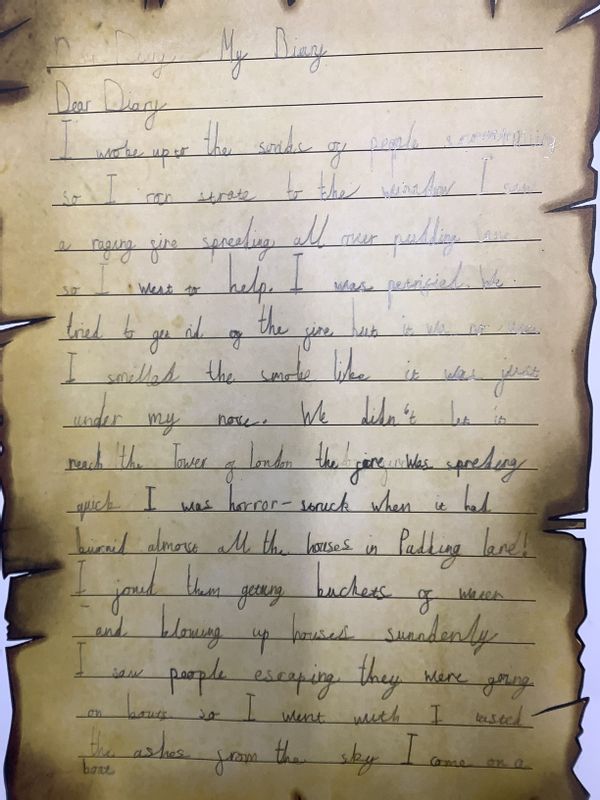 My Diary
Dear Diary
I woke up to the sonds of people
so I ran strate to the window I saw
a raging fire spreeding all over pudding lane
so I went to help. I was petrified. We
tried to get rid of the fire but it was no use
I smelled the smoke like it was just
under my nose. We didn't let it
reach the Tower of london the fire was spreding
quick I was horror-struck when it had
burned almost all the houses in Pudding lane!
I joind them getting buckets of water
and blowing up houses sunndenly
I saw people escaping they were going
on boats so I went with I tasted
the ashes from the sky I come on a
boat